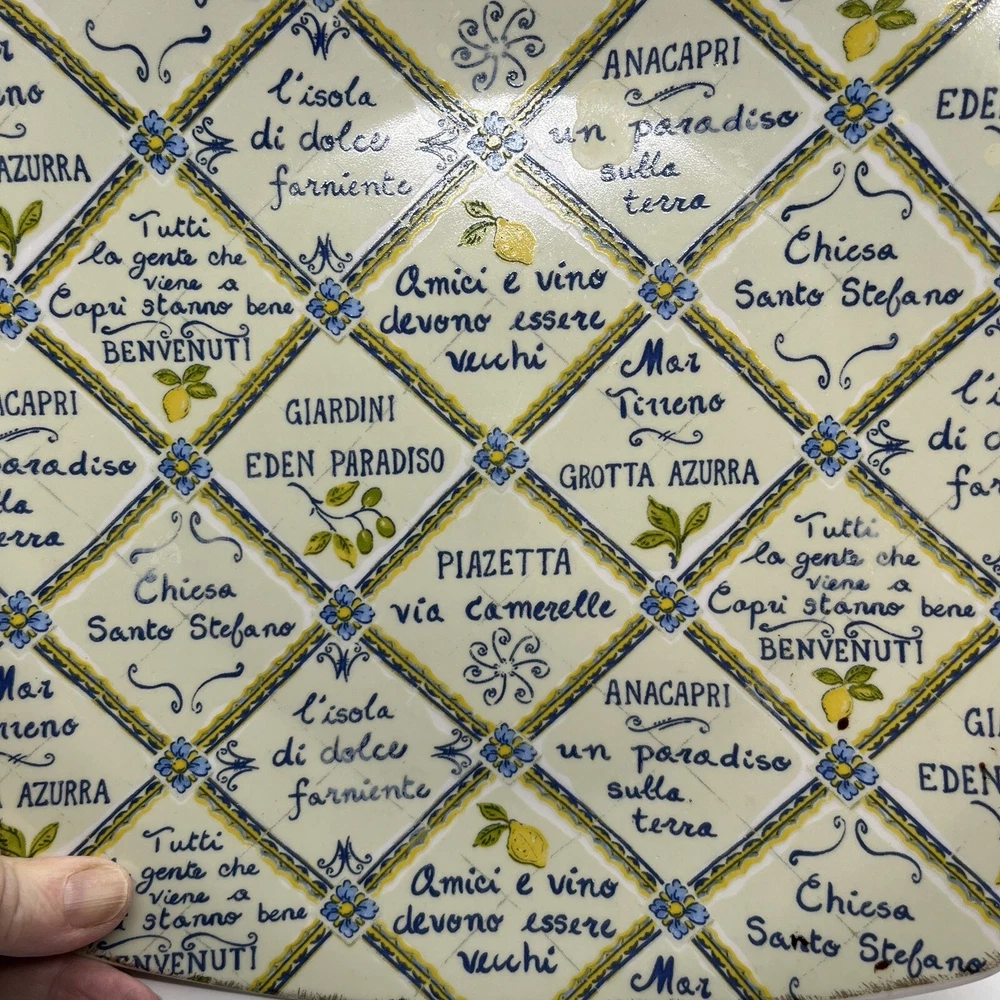 l'isola
di dolce
farniente
ANACAPRI
un paradiso
sulla
terra
EDE
no
AZURRA
Tutti
la gente che
viene a
Capri stanno bene
BENVENUTI
Amici e vino
devono essere
vecchi
Chiesa
Santo Stefano
ACAPRI
paradiso
lla
erra
GIARDINI
EDEN PARADISO
Mar
Tirreno
GROTTA AZURRA
l'i
di d
far
Chiesa
Santo Stefano
PIAZETTA
via camerelle
Tutti
la gente che
viene a
Capri stanno bene
BENVENUTI
Mar
rreno
A AZURRA
l'isola
di dolce
farniente
ANACAPRI
un paradiso
sulla
terra
GI
EDEN
Tutti
gente che
viene a
i stanno bene
ENVENUTI
Amici e vino
devono essere
vecchi
Mar
Chiesa
Santo Stefano